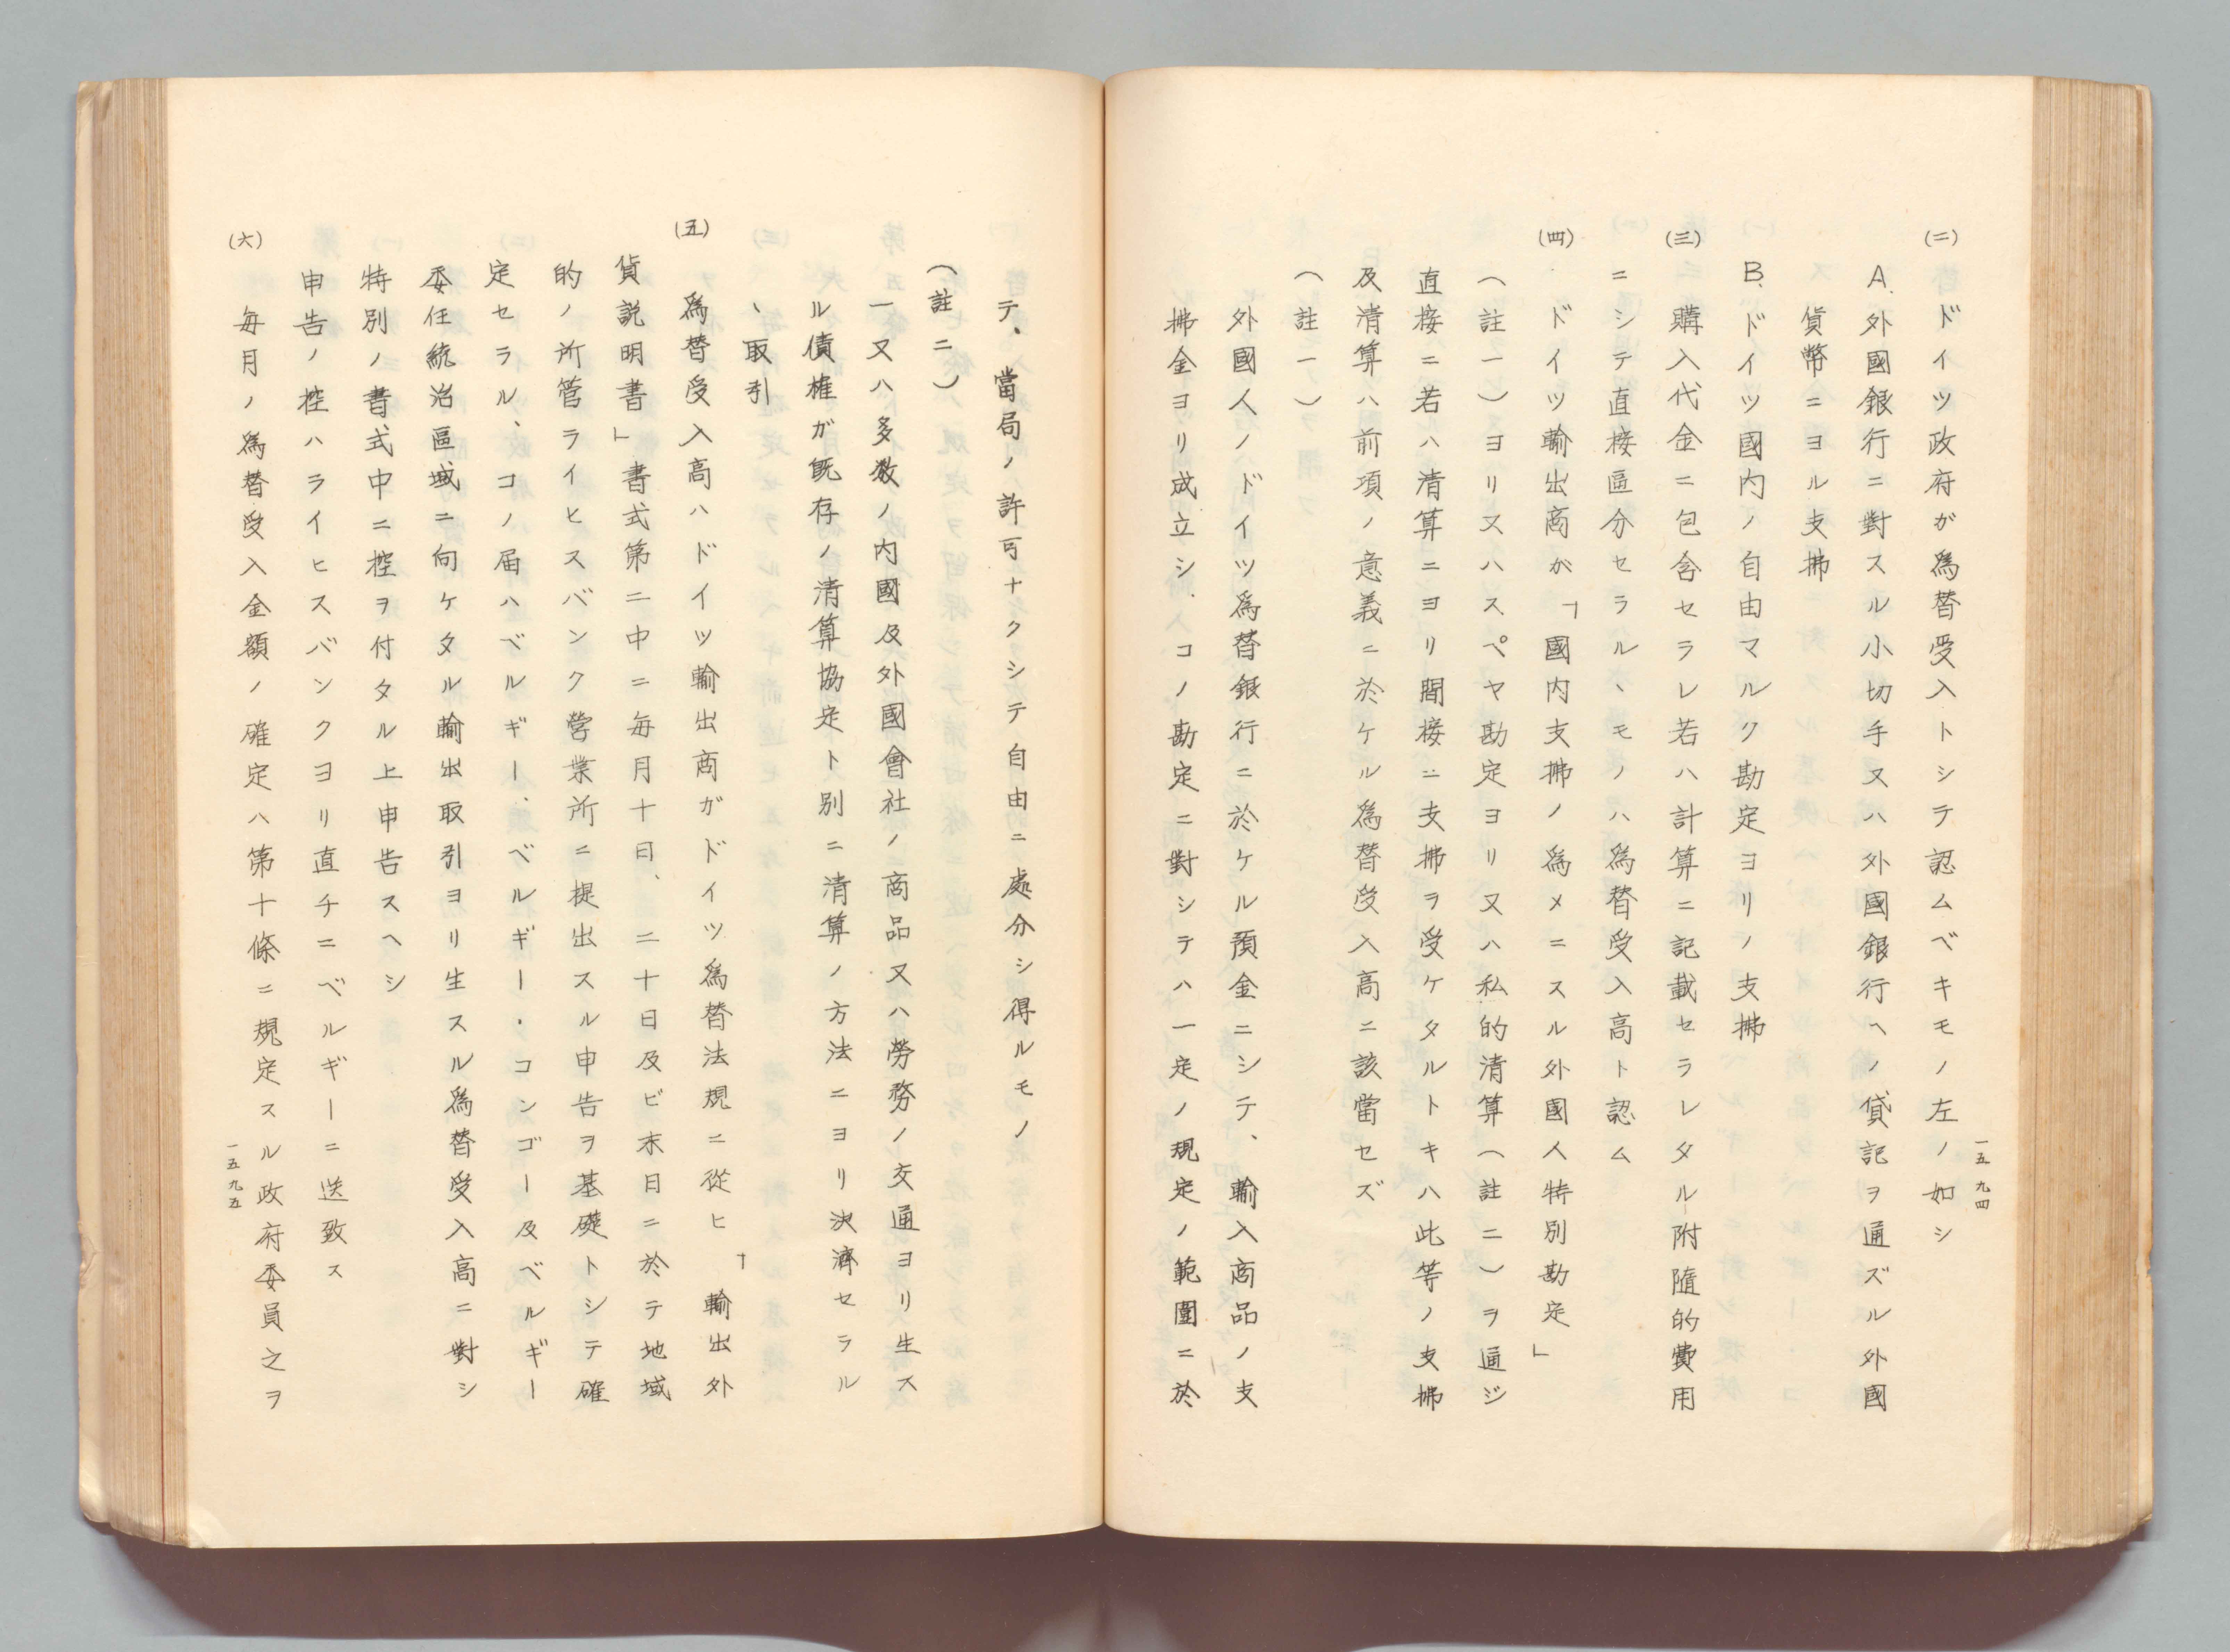 一五九四
(二) ドイツ政府が為替受入トシテ認ムベキモノ左ノ如シ
A. 外國銀行ニ對スル小切手又ハ外國銀行ヘノ貸記ヲ通ズル外國
貨幣ニヨル支拂
B. ドイツ國内ノ自由マルク勘定ヨリノ支拂
(三) 購入代金ニ包含セラレ若ハ計算ニ記載セラレタル附隨的費用
ニシテ直接區分セラルヽモノハ為替受入高ト認ム
(四) ドイツ輸出商が「國内支拂ノ為メニスル外國人特別勘定」
(註一)ヨリ又ハスペヤ勘定ヨリ又ハ私的清算(註二)ヲ通ジ
直接ニ若ハ清算ニヨリ間接ニ支拂ヲ受ケタルトキハ此等ノ支拂
及清算ハ前項ノ意義ニ於ケル為替受入高ニ該當セズ
(註一)
外國人ノドイツ為替銀行ニ於ケル預金ニシテ、輸入商品ノ支
拂金ヨリ成立シ、コノ勘定ニ對シテハ一定ノ規定ノ範圍ニ於
テ、當局ノ許可ナクシテ自由ニ處分シ得ルモノ
(註二)
一又ハ多数ノ内國及外國會社ノ商品又ハ勞務ノ交通ヨリ生ス
ル債権ガ既存ノ清算協定ト別ニ清算ノ方法ニヨリ決濟セラル
ヽ取引
(五) 為替受入高ハドイツ輸出商ガドイツ為替法規ニ從ヒ「輸出外
貨説明書」書式第二中ニ毎月十日、二十日及ビ末日ニ於テ地域
的ノ所管ライヒスバンク營業所ニ提出スル申告ヲ基礎トシテ確
定セラル、コノ届ハベルギー、ベルギー・コンゴー及ベルギー
委任統治區域ニ向ケタル輸出取引ヨリ生スル為替受入高ニ對シ
特別ノ書式中ニ控ヲ付タル上申告スヘシ
申告ノ控ハライヒスバンクヨリ直チニベルギーニ送致ス
(六) 毎月ノ為替受入金額ノ確定ハ第十條ニ規定スル政府委員之ヲ
一五九五